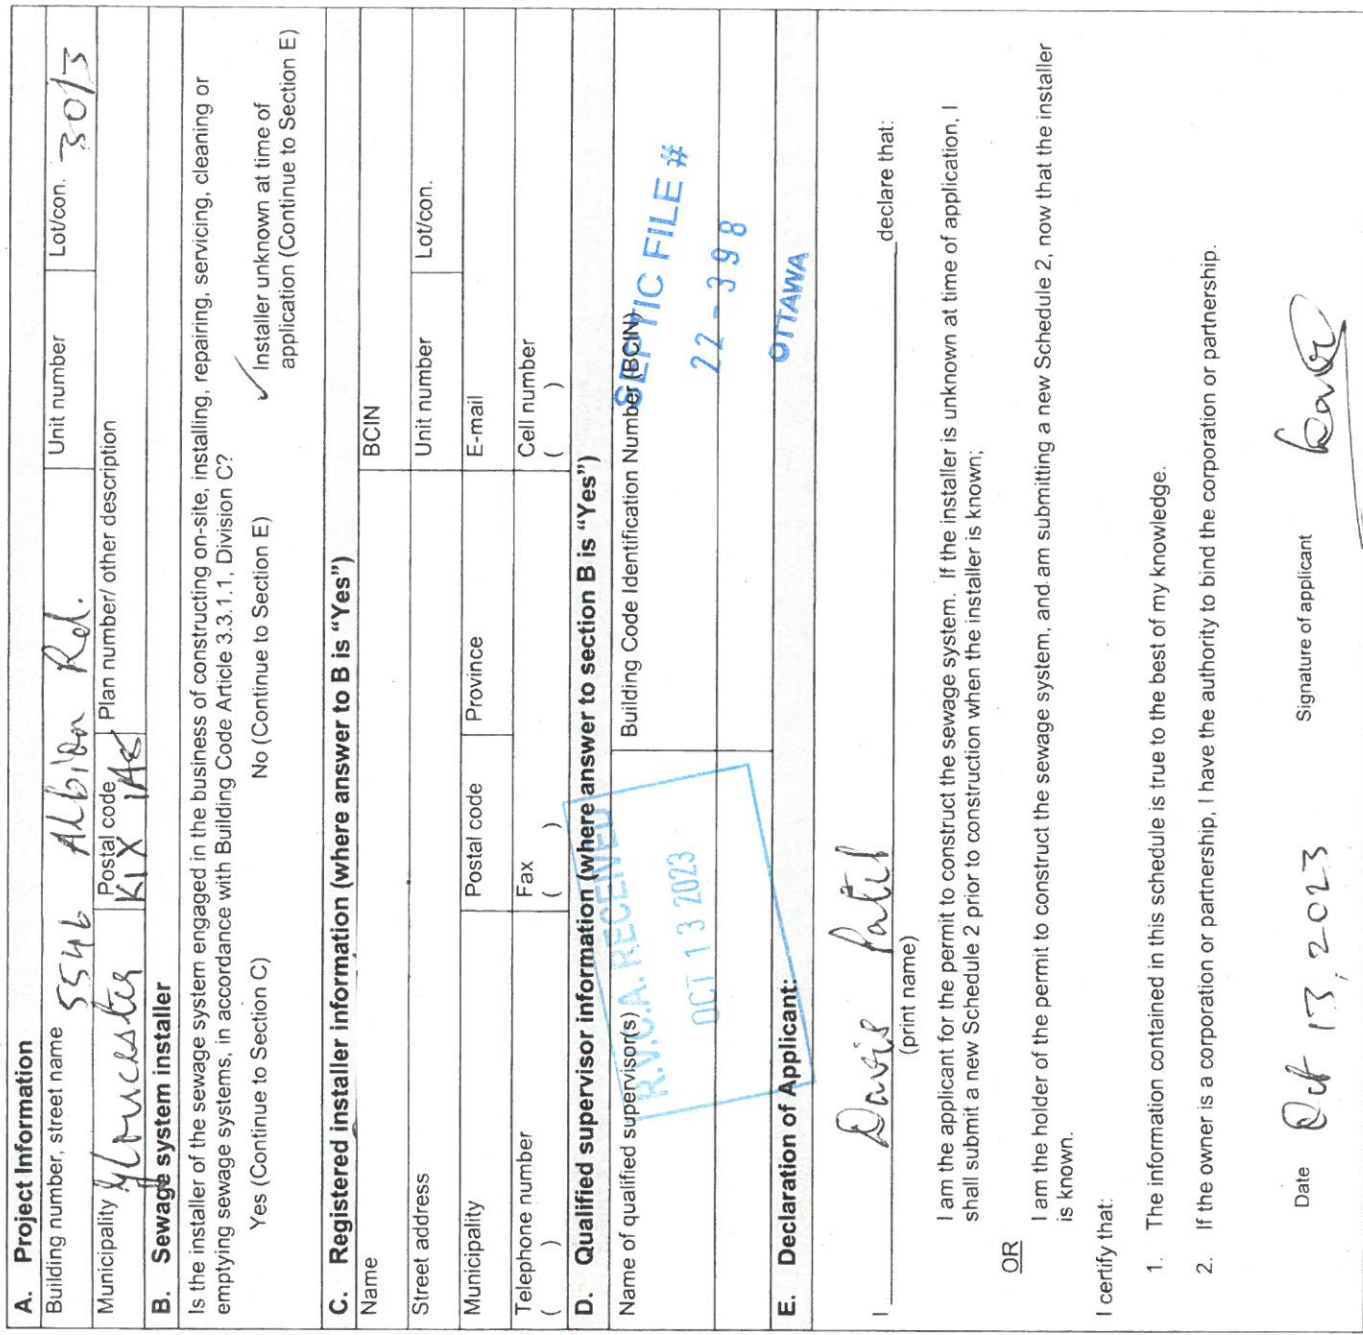 A. Project Information
Building number, street name 5546 Albion Rd. Unit number Lot/con. 30/3
Municipality Gloucester Postal code K1X 1A2 Plan number/ other description
B. Sewage system installer
Is the installer of the sewage system engaged in the business of constructing on-site, installing, repairing, servicing, cleaning or
emptying sewage systems, in accordance with Building Code Article 3.3.1.1, Division C?
Yes (Continue to Section C) No (Continue to Section E) ✓ Installer unknown at time of
application (Continue to Section E)
C. Registered installer information (where answer to B is “Yes”)
Name BCIN
Street address Unit number Lot/con.
Municipality Postal code Province E-mail
Telephone number Fax Cell number
( ) ( ) ( )
D. Qualified supervisor information (where answer to section B is “Yes”)
Name of qualified supervisor(s) Building Code Identification Number (BCIN)
R.V.C.A. RECEIVED
OCT 13 2023
SEPTIC FILE #
22-398
OTTAWA
E. Declaration of Applicant:
I Davis Patel declare that:
(print name)
I am the applicant for the permit to construct the sewage system. If the installer is unknown at time of application, I
shall submit a new Schedule 2 prior to construction when the installer is known;
OR
I am the holder of the permit to construct the sewage system, and am submitting a new Schedule 2, now that the installer
is known.
I certify that:
1. The information contained in this schedule is true to the best of my knowledge.
2. If the owner is a corporation or partnership, I have the authority to bind the corporation or partnership.
Date Oct 13, 2023 Signature of applicant